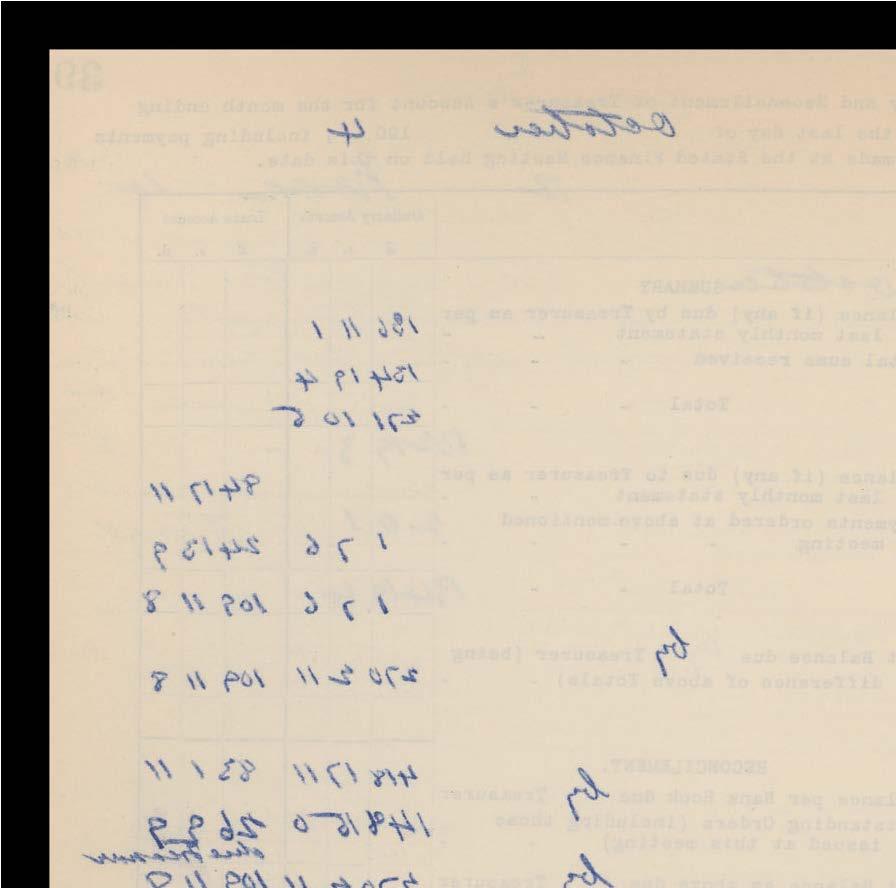 39
y and Reconcilement of Treasurer's Account for the month ending
the last day of October 190 4, including payments
made at the Stated Finance Meeting held on this date.
Ordinary Account. Loans Account.
£ s. d. £ s. d.
SUMMARY
lance (if any) due by Treasurer as per
last monthly statement - - 136 11 1
tal sums received - - 134 19 4
Total - - - 271 10 5
lance (if any) due to Treasurer as per
last monthly statement - - 84 17 11
yments ordered at above-mentioned
meeting - - - 1 7 6 24 13 9
Total - - 1 7 6 109 11 8
t Balance due by Treasurer (being
difference of above Totals) - - 270 2 11 109 11 8
RECONCILEMENT.
lance per Bank Book due by Treasurer 418 17 11 83 1 11
tstanding Orders (including those
issued at this meeting) - 148 15 0 26 9 9
due Treasurer
Balance as above due by Treasurer 270 2 11 109 11 8